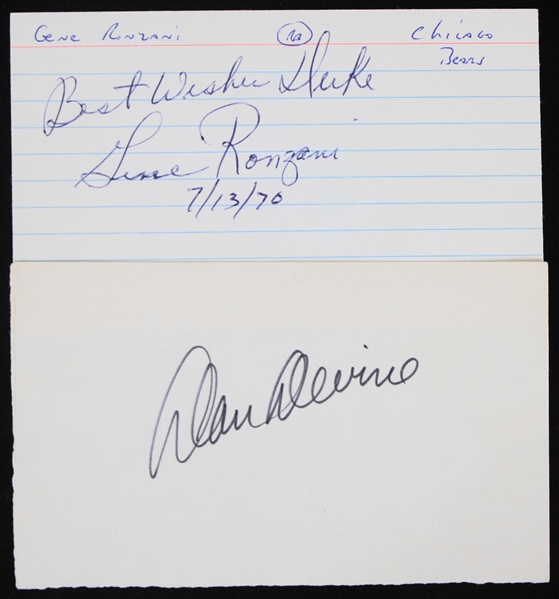 Gene Ronzani Chicago
Bears
Best Wishes Duke
Gene Ronzani
7/13/70
Dan Devine